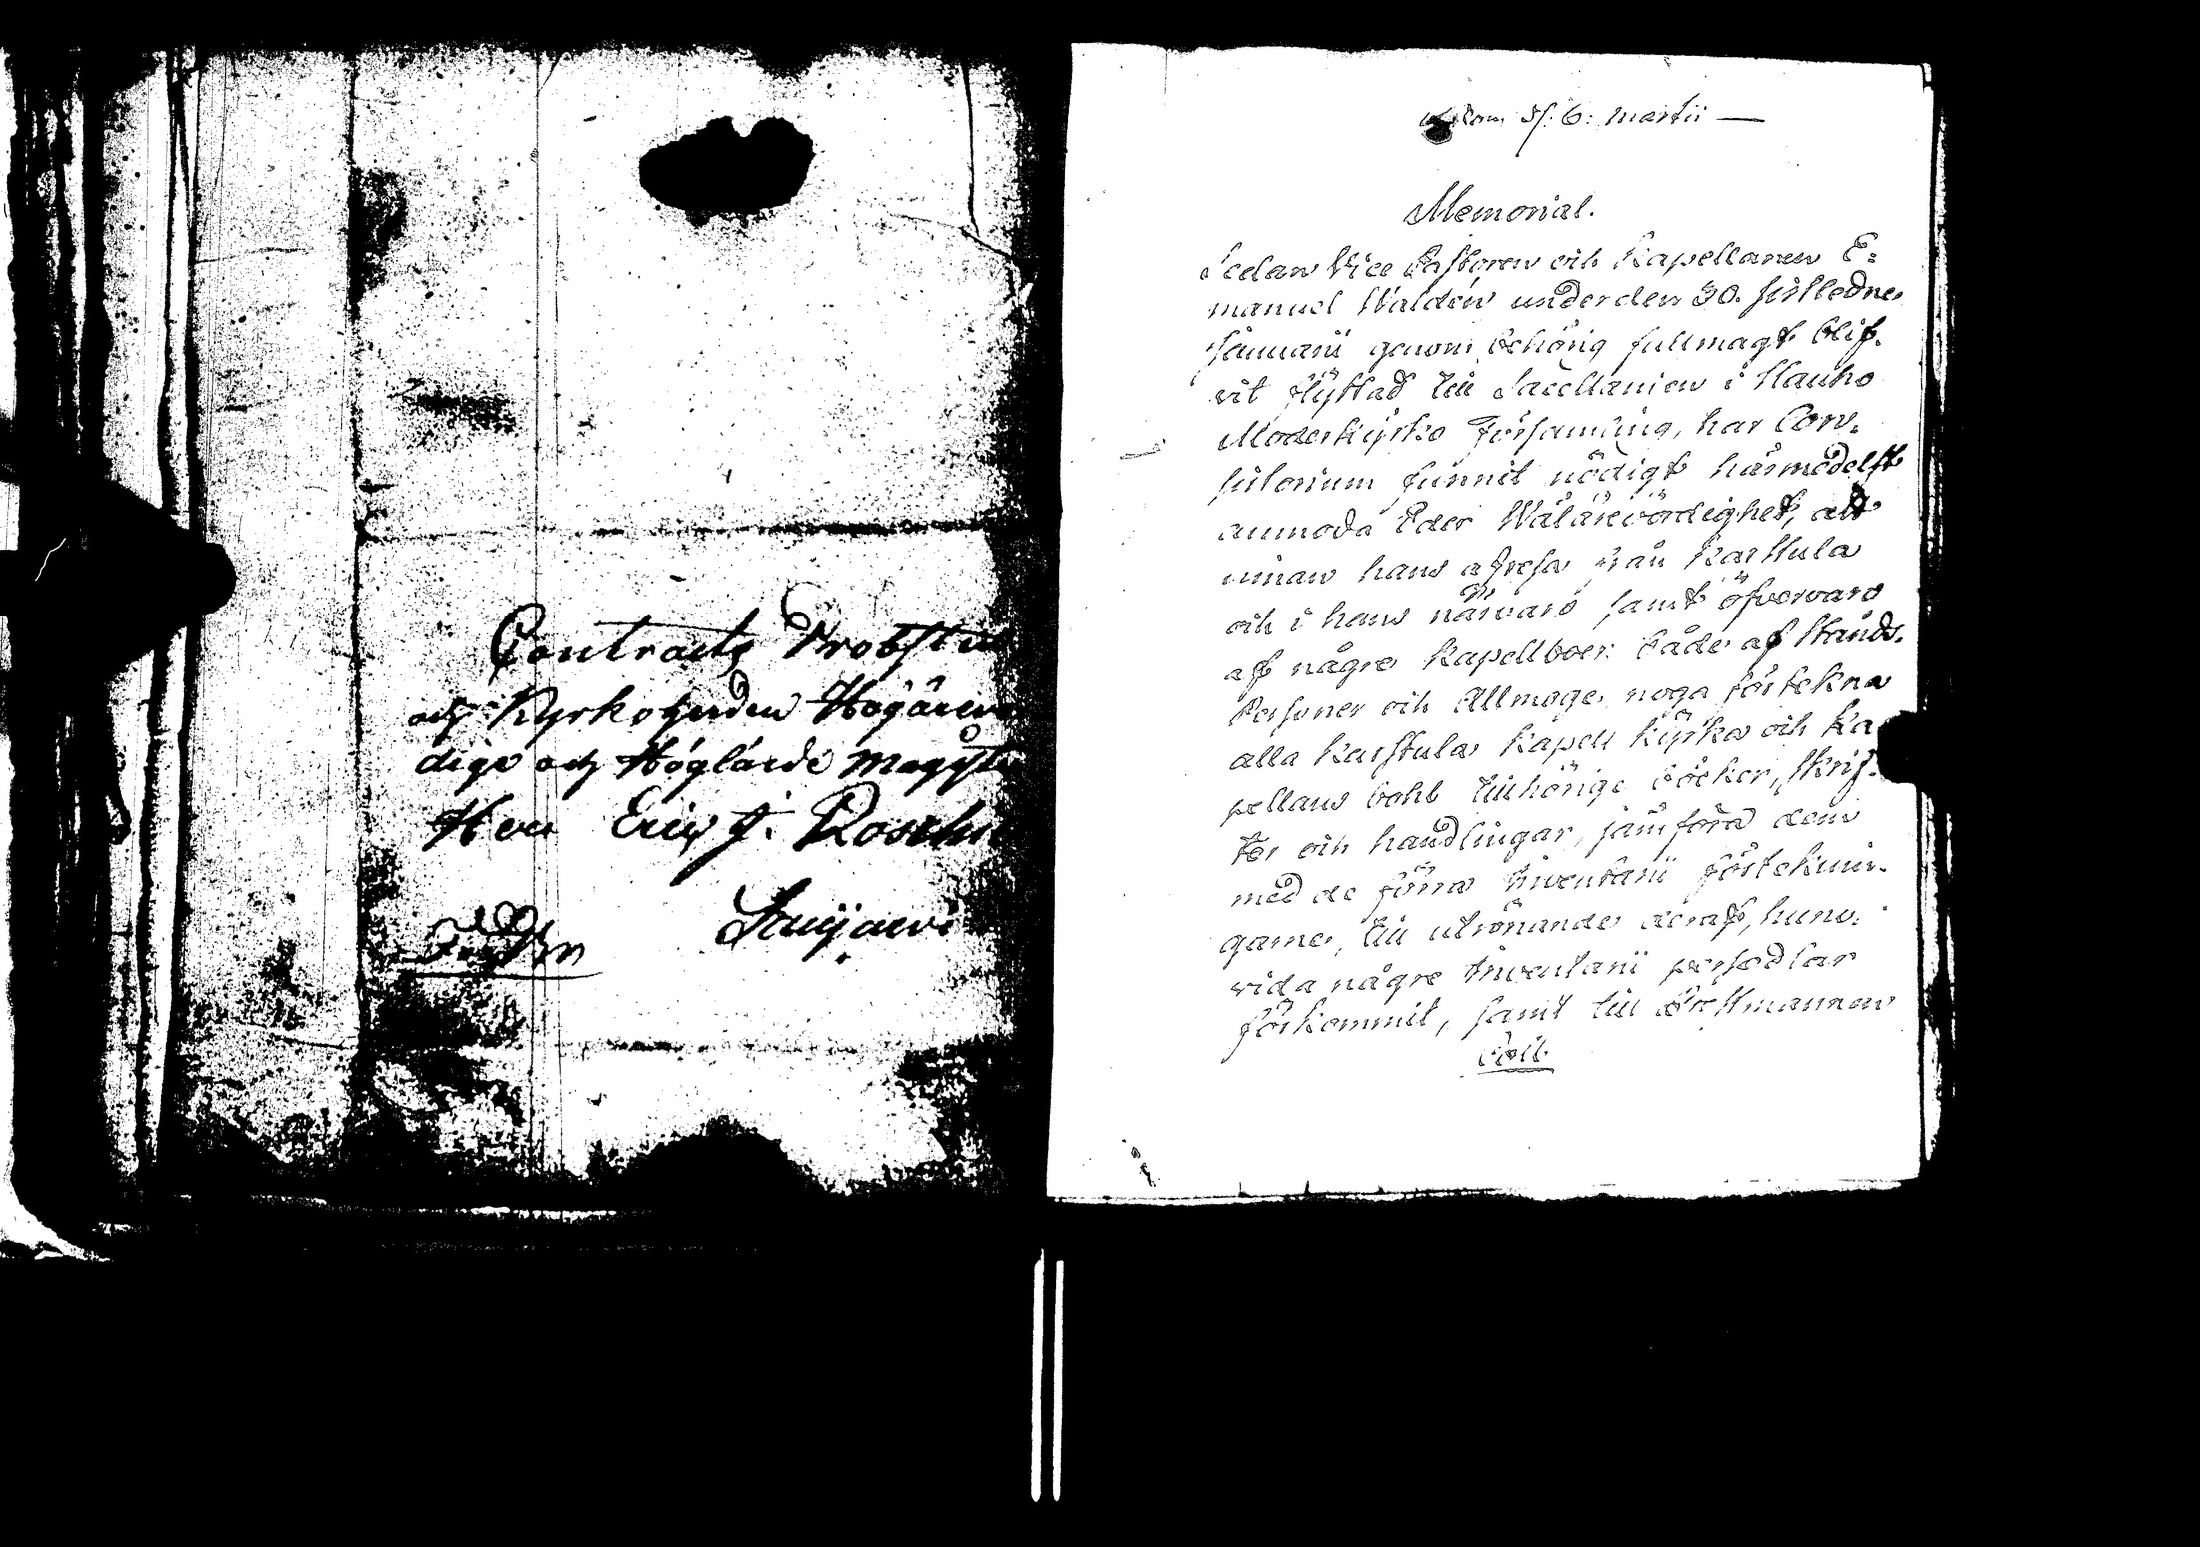 Contracts Probsten
och Kyrkoherden Högärewör
dige och Höglärde Magister
Herr Eric J. Roschi
Saarijarvi
ankom d. 6: Martii —
Memorial.
Sedan Vice Pastoren och Kapellanen E=
manuel Waldén under den 30. sistledne
Januarii genom behörig fullmagt blif-
vit flyttad till Sacellanien i Hauho
Moderkyrko Församling, har Con-
sistorium funnit nödigt härmedelst
anmoda Eder Wälärevördighet, att
innan hans afresa från Karstula
och i hans närvaro samt öfvervaro
af någre kapellboer både af Stånds-
Personer och Allmoge, noga förtekna
alla Karstula kapell kyrka och Ka
pellans bohl tillhörige böcker, skrif-
ter och handlingar, jämföra dem
med de förra Inventarii förteknin-
garne, till utrönande deraf, huru-
vida någre Inventarii persedlar
förkommit, samt till Prestmannen
Coll.